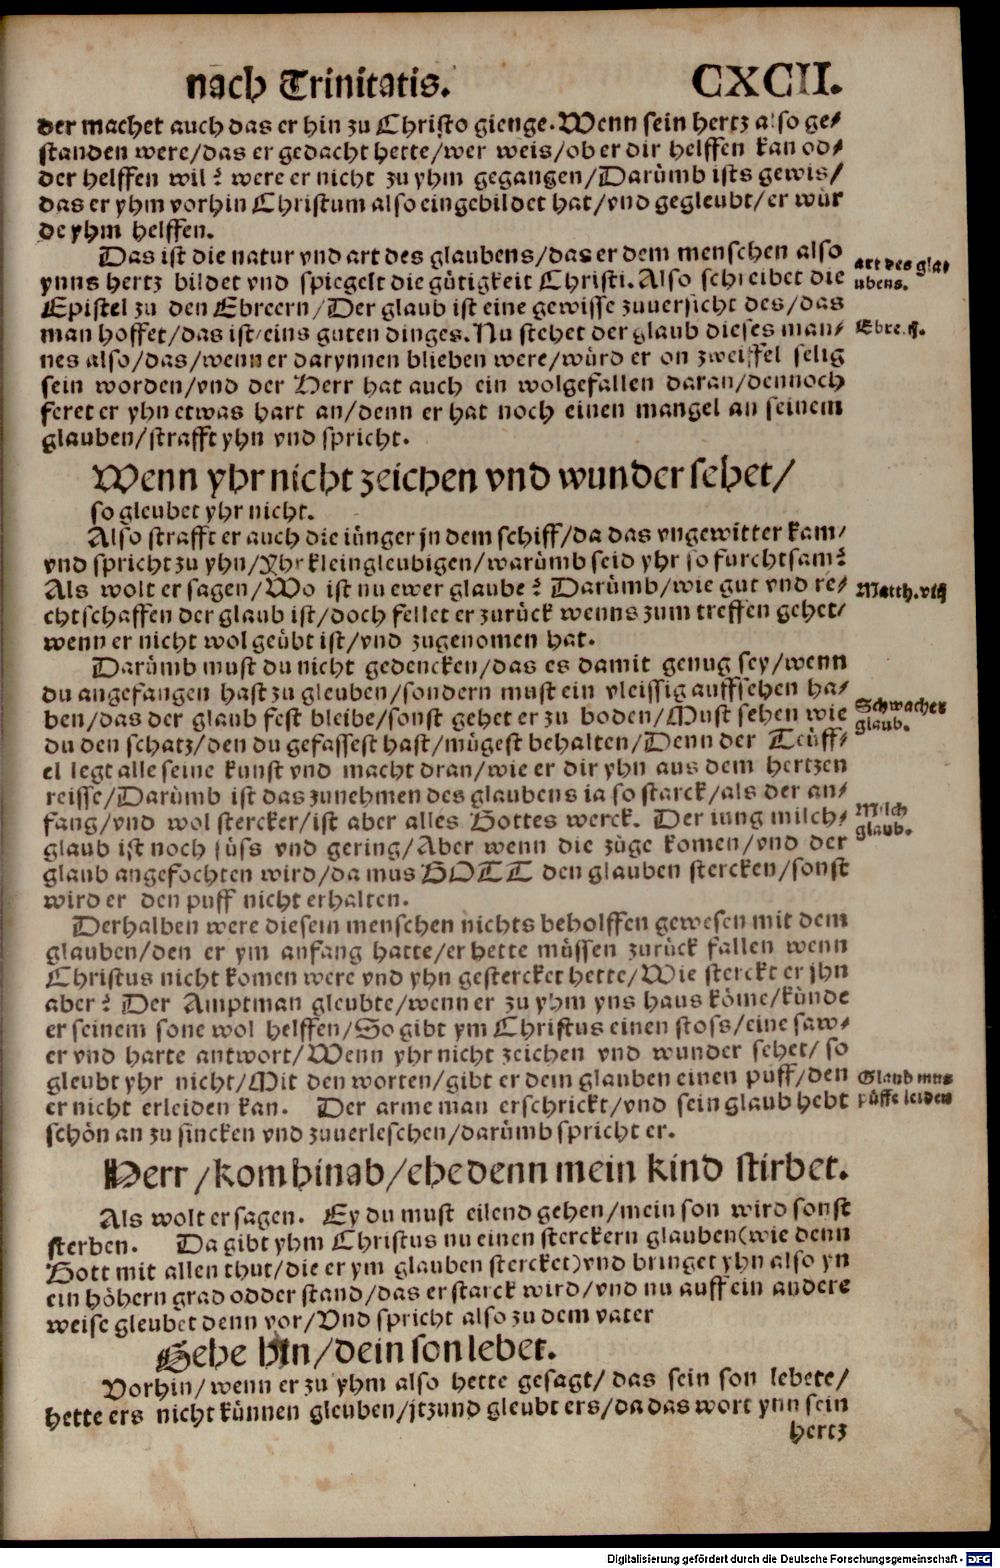 nach Trinitatis. CXCII.
der machet auch das er hin zu Christo gienge. Wenn sein hertz also ge/
standen were/das er gedacht hette/wer weis/ob er dir helffen kan od/
der helffen wil? were er nicht zu yhm gegangen/Darümb ists gewis/
das er yhm vorhin Christum also eingebildet hat/vnd gegleubt/er wür
de yhm helffen.
Das ist die natur vnd art des glaubens/das er dem menschen also
ynns hertz bildet vnd spiegelt die gütigkeit Christi. Also schreibet die
Epistel zu den Ebreern/Der glaub ist eine gewisse zuuersicht des/das
man hoffet/das ist/eins guten dinges. Nu stehet der glaub dieses man/
nes also/das/wenn er darynnen blieben were/würd er on zweiffel selig
sein worden/vnd der Herr hat auch ein wolgefallen daran/dennoch
feret er yhn etwas hart an/denn er hat noch einen mangel an seinem
glauben/strafft yhn vnd spricht.
art des gla/
ubens.
Ebre. xj.
Wenn yhr nicht zeichen vnd wunder sehet/
so gleubet yhr nicht.
Also strafft er auch die iünger jn dem schiff/da das vngewitter kam/
vnd spricht zu yhn/Yhr kleingleubigen/warümb seid yhr so furchtsam?
Als wolt er sagen/Wo ist nu ewer glaube? Darümb/wie gut vnd re/
chtschaffen der glaub ist/doch fellet er zurück wenns zum treffen gehet/
wenn er nicht wol geübt ist/vnd zugenomen hat.
Matth. viij
Darümb must du nicht gedencken/das es damit genug sey/wenn
du angefangen hast zu gleuben/sondern must ein vleissig auffsehen ha/
ben/das der glaub fest bleibe/sonst gehet er zu boden/Must sehen wie
du den schatz/den du gefassest hast/mügest behalten/Denn der Teüff/
el legt alle seine kunst vnd macht dran/wie er dir yhn aus dem hertzen
reisse/Darümb ist das zunehmen des glaubens ia so starck/als der an/
fang/vnd wol stercker/ist aber alles Gottes werck. Der iung milch/
glaub ist noch süss vnd gering/Aber wenn die züge komen/vnd der
glaub angefochten wird/da mus GOTT den glauben stercken/sonst
wird er den puff nicht erhalten.
Schwacher
glaub.
Milch
glaub.
Derhalben were diesem menschen nichts beholffen gewesen mit dem
glauben/den er ym anfang hatte/er hette müssen zurück fallen wenn
Christus nicht komen were vnd yhn gestercket hette/Wie sterckt er jhn
aber? Der Amptman gleubte/wenn er zu yhm yns haus köme/künde
er seinem sone wol helffen/So gibt ym Christus einen stoss/eine saw/
er vnd harte antwort/Wenn yhr nicht zeichen vnd wunder sehet/ so
gleubt yhr nicht/Mit den worten/gibt er dem glauben einen puff/den
er nicht erleiden kan. Der arme man erschrickt/vnd sein glaub hebt
schön an zu sincken vnd zuuerleschen/darümb spricht er.
Glaub mus
püffe leiden
Herr/kom hinab/ehe denn mein kind stirbet.
Als wolt er sagen. Ey du must eilend gehen/mein son wird sonst
sterben. Da gibt yhm Christus nu einen sterckern glauben(wie denn
Gott mit allen thut/die er ym glauben stercket)vnd bringet yhn also yn
ein höhern grad odder stand/das er starck wird/vnd nu auff ein andere
weise gleubet denn vor/Vnd spricht also zu dem vater
Gehe hin/dein son lebet.
Vorhin/wenn er zu yhm also hette gesagt/ das sein son lebete/
hette ers nicht künnen gleuben/jtzund gleubt ers/da das wort ynn sein
hertz
Digitalisierung gefördert durch die Deutsche Forschungsgemeinschaft - DFG